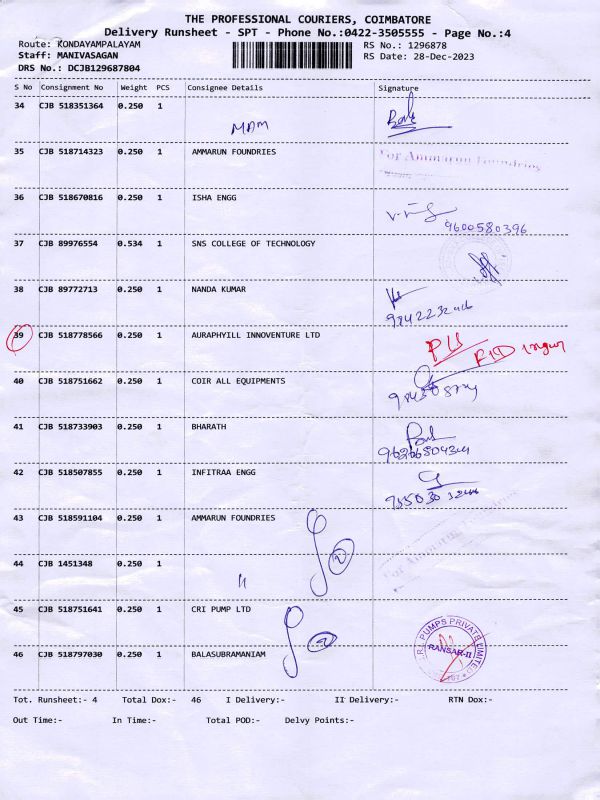 THE PROFESSIONAL COURIERS, COIMBATORE
Delivery Runsheet - SPT - Phone No.:0422-3505555 - Page No.:4
Route: KONDAYAMPALAYAM RS No.: 1296878
Staff: MANIVASAGAN RS Date: 28-Dec-2023
DRS No.: DCJB129687804
S No Consignment No Weight PCS Consignee Details Signature
34 CJB 518351364 0.250 1
MDM
35 CJB 518714323 0.250 1 AMMARUN FOUNDRIES For Ammarun Foundries
36 CJB 518670816 0.250 1 ISHA ENGG
9600580396
37 CJB 89976554 0.534 1 SNS COLLEGE OF TECHNOLOGY
38 CJB 89772713 0.250 1 NANDA KUMAR
39 CJB 518778566 0.250 1 AURAPHYILL INNOVENTURE LTD
40 CJB 518751662 0.250 1 COIR ALL EQUIPMENTS
41 CJB 518733903 0.250 1 BHARATH
42 CJB 518507855 0.250 1 INFITRAA ENGG
43 CJB 518591104 0.250 1 AMMARUN FOUNDRIES
2
For Ammarun Foundries
44 CJB 1451348 0.250 1
"
45 CJB 518751641 0.250 1 CRI PUMP LTD
PUMPS PRIVATE LIMITED
RANSAR-II
46 CJB 518797030 0.250 1 BALASUBRAMANIAM
Tot. Runsheet:- 4 Total Dox:- 46 I Delivery:- II Delivery:- RTN Dox:-
Out Time:- In Time:- Total POD:- Delvy Points:-